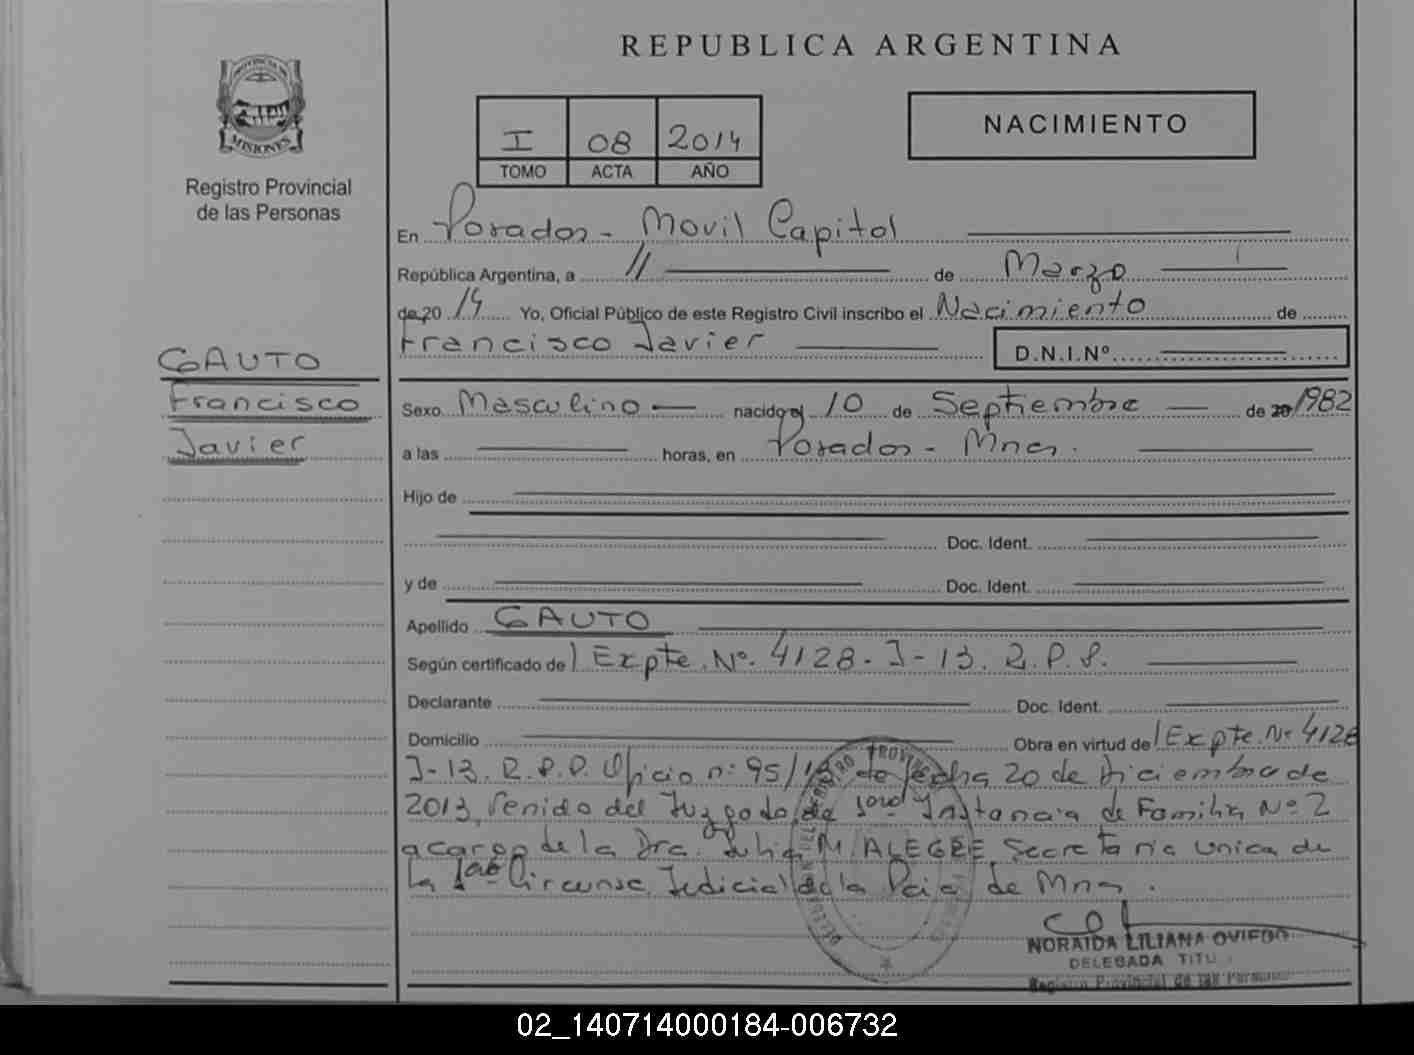 REPUBLICA ARGENTINA
PROVINCIA DE
MISIONES
Registro Provincial
de las Personas
I 08 2014
TOMO ACTA AÑO
NACIMIENTO
En Posadas - Movil Capital
República Argentina, a 11 de Marzo
de 20 14 Yo, Oficial Público de este Registro Civil inscribo el Nacimiento de
Francisco Javier D.N.I.Nº
GAUTO
Francisco
Javier
Sexo Masculino nacido el 10 de Septiembre de 20 1982
a las horas, en Posadas - Mnes.
Hijo de
Doc. Ident.
y de Doc. Ident.
Apellido GAUTO
Según certificado de Expte. Nº. 4128 - J - 13. R.P.P.
Declarante Doc. Ident.
Domicilio Obra en virtud de Expte. Nº 4128
J-13. R.P.P. Oficio nº 95/13 de fecha 20 de Diciembre de
2013, Venido del Juzgado de 1era Instancia de Familia Nº 2
a cargo de la Dra. Julia M. ALEGRE, Secretaria unica de
la 1era Circunsc. Judicial de la Pcia de Mnes.
NORAIDA LILIANA OVIEDO
DELEGADA TITU
Registro Provincial de las Personas
02_140714000184-006732